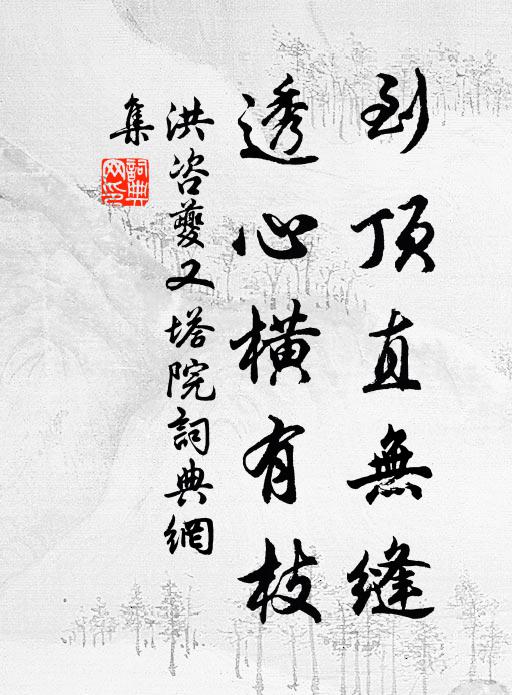 到頂直無縫
透心橫有枝
洪咨夔又塔院詞典網
集
詞典網印